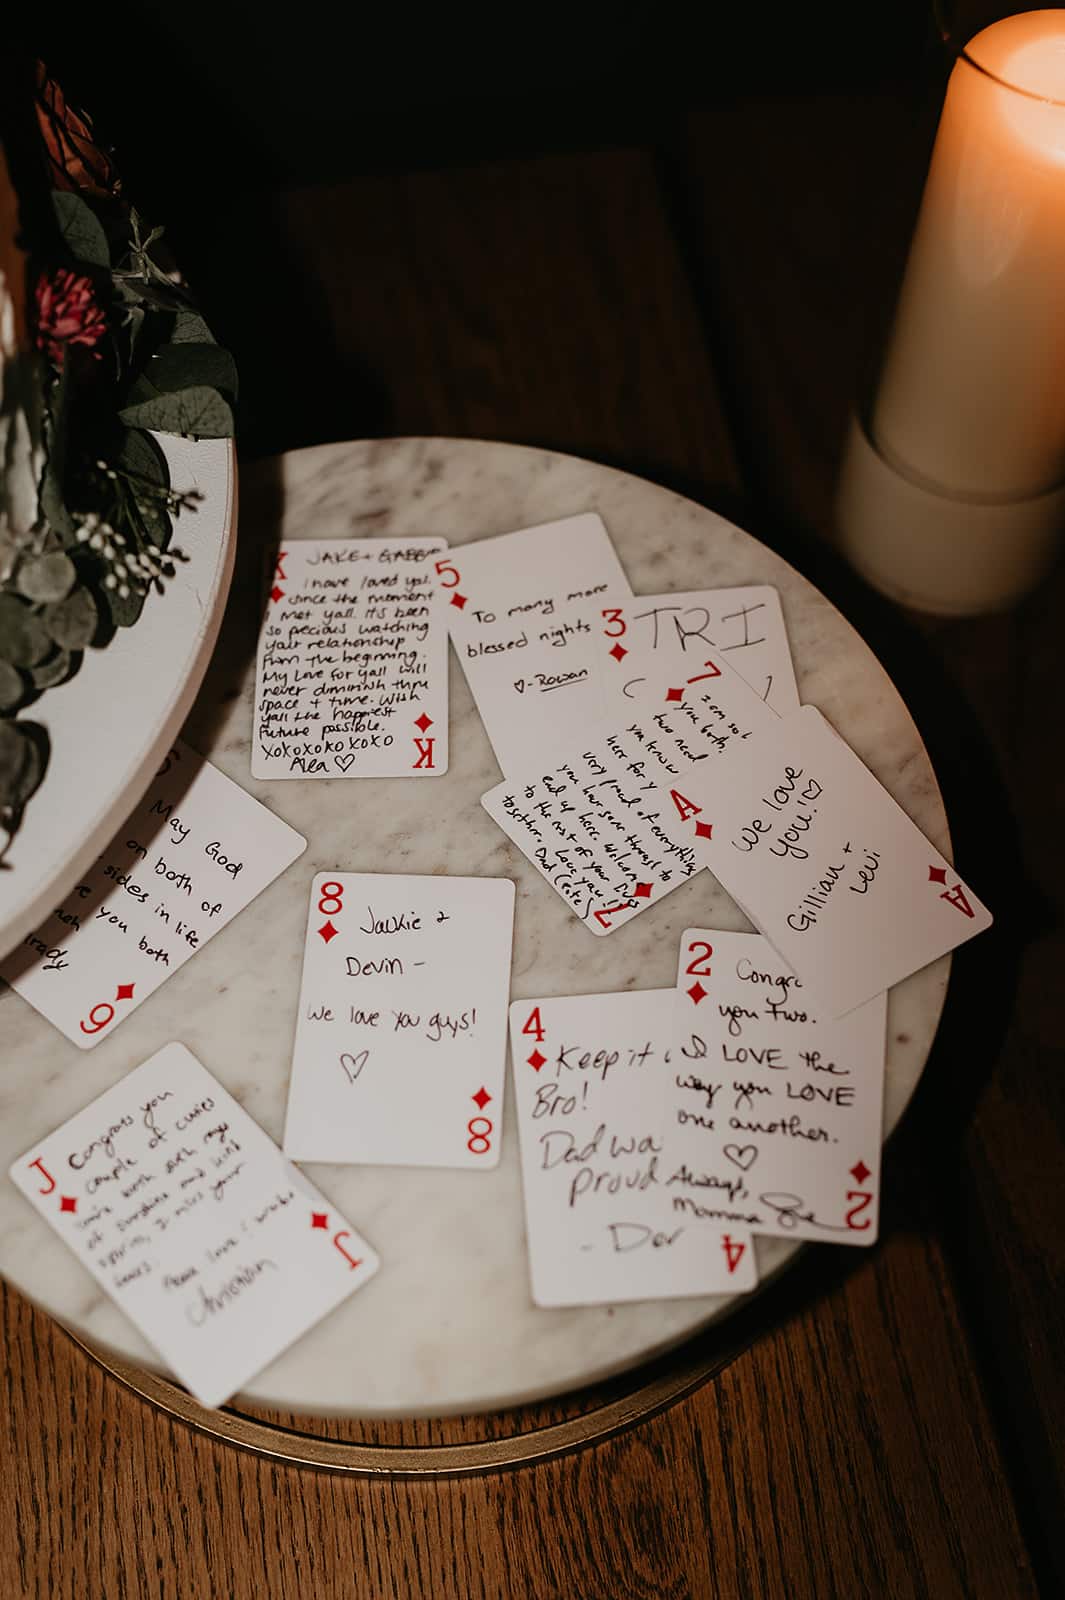 K
JAKE + GABBE
i have loved yall
since the moment
I met yall. it's been
so precious watching
your relationship
from the beginning.
My Love for yall will
never diminish thru
space + time. Wish
yall the happiest
future possible.
XOXOXOXOXOXO
Alea ♡
K
5
To many more
blessed nights
♡ - Rowan
3
TRI
7
I am so
you both.
two need
you know
here for y
very proud of everything
you have gone through to
end up here. Welcome
to the rest of your lives
together. Love you!!
Dad
7
A
We love
you! ♡
Gillian +
Levi
A
6
May God
on both of
sides in life
you both
6
8
Jackie &
Devin -
we love you guys!
♡
8
2
Congr
you two.
I LOVE the
way you LOVE
one another.
♡
Always,
Momma Sue
2
4
Keep it
Bro!
Dad wa
proud
- Der
4
J
Congrats you
couple of cuties
both such rays
of sunshine and kind
spirits, I miss your
faces.
love
Christian
J